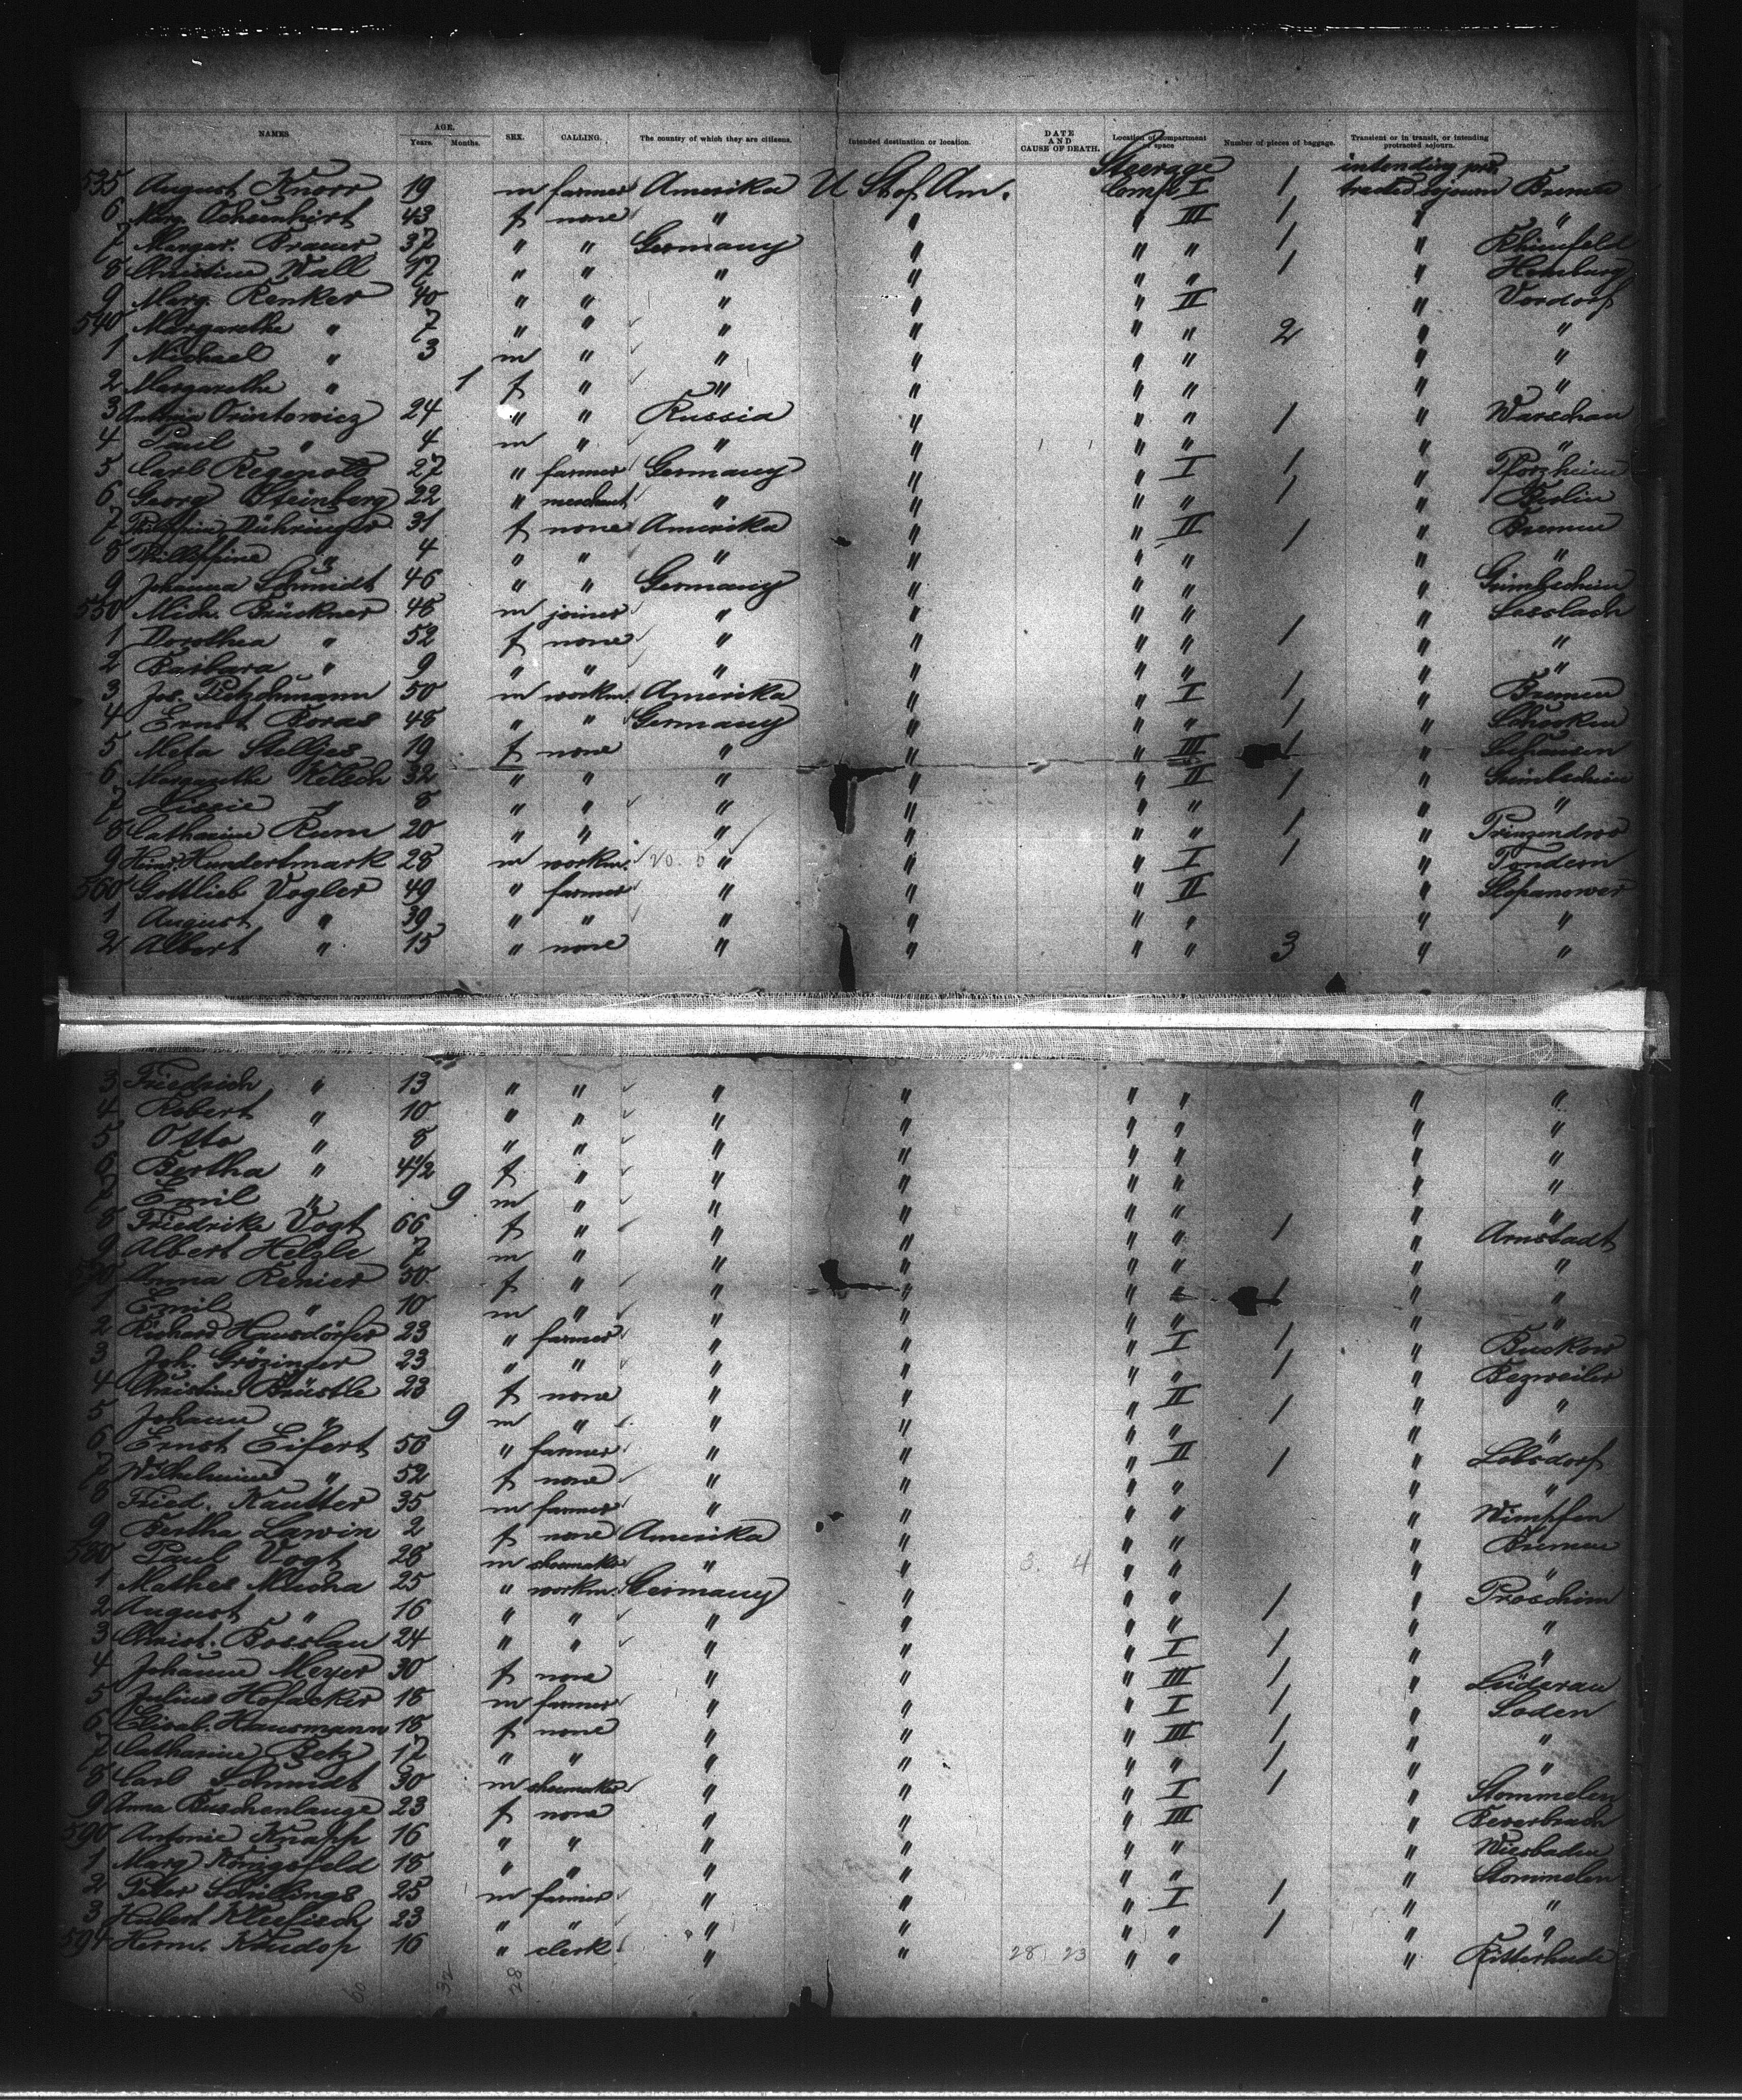 NAMES AGE. Years. Months. SEX. CALLING. The country of which they are citizens. Intended destination or location. DATE AND CAUSE OF DEATH. Location of compartment or space Number of pieces of baggage. Transient or in transit, or intending protracted sojourn.
Steerage intending pro
535 August Knorr 19 m farmer Amerika U St of Am. Comp I 1 tracted sojourn Bremen
6 Marg. Ochsenhirt 43 f none " " " III 1 " "
7 Margar. Brauer 37 " " Germany " " " 1 " Rheinfeld
8 Christine Wall 17 " " " " " " 1 " Homburg
9 Marg. Renker 40 " " " " " II " Vordorf
540 Margarethe " 7 " " " " " " 2 " "
1 Michael " 3 m " " " " " " "
2 Margarethe " 1 f " " " " " " "
3 Orintowicz 24 " " Russia " " " 1 " Warschau
4 Paul " 4 m " " " " " " "
5 Carl Regenold 27 " farmer Germany " " I 1 " Pforzheim
6 Georg Steinberg 22 " merchant " " " " 1 " Berlin
7 Dühringer 31 f none Amerika " " II 1 " Bremen
8 4 " " " " " " " "
9 Johanna Schmidt 46 " " Germany " " " " Gimbsheim
550 Mich. Brückner 48 m joiner " " " " " Sesslach
1 Dorothea " 52 f none " " " " 1 " "
2 Barbara " 9 " " " " " " " "
3 Jos. 50 m workm. Amerika " " I 1 " Bremen
4 Ernst Boras 48 " " Germany " " " 1 " Schocken
5 Meta Stelljes 19 f none " " " III 1 "
6 Margarethe Ketsch 32 " " " " " II 1 " Gimbsheim
7 Lissie " 8 " " " " " " " "
8 Catharine Rum 20 " " " " " " 1 "
9 Heinr. Hundertmark 28 m workm. " " " I 1 " Tondern
560 Gottlieb Vogler 49 " farmer " " " II " Stepanowo
1 August " 39 " " " " " " " "
2 Albert " 15 " none " " " " 3 " "
3 Friedrich " 13 " " " " " " " "
4 Robert " 10 " " " " " " " "
5 Otto " 8 " " " " " " " "
6 Bertha " 4 1/2 f " " " " " " "
7 Emil " 9 m " " " " " " "
8 Friedrike Vogt 66 f " " " " " 1 " Arnstadt
9 Albert Helzle 7 m " " " " " " "
570 Anna Renier 50 f " " " " " 1 " "
1 Emil " 10 m " " " " " " "
2 Richard Hausdörfer 23 " farmer " " " I 1 " Buckow
3 Joh. Grözinger 23 " " " " " " 1 " Bezweiler
4 Christine Brüstle 23 f none " " " II 1 " "
5 Johann " 9 m " " " " " " "
6 Ernst Eifert 56 " farmer " " " II 1 " Lobsdorf
7 Wilhelmine " 52 f none " " " " " "
8 Fried. Kautter 35 m farmer " " " " " Wimpfen
9 Bertha Lawin 2 f none Amerika " " " " Bremen
580 Paul Vogt 28 m shoemaker " " 3. 4 " " " "
1 Mathes Mucha 25 " workm. Germany " " " 1 " Proschim
2 August " 16 " " " " " " " "
3 Christ. Bosslau 24 " " " " " I 1 " "
4 Johanne Meyer 30 f none " " " III 1 " Lüderau
5 Julius Hofacker 18 m farmer " " " I 1 " Soden
6 Elisab. Hausmann 18 f none " " " III 1 " "
7 Catharine Betz 17 " " " " " " 1 " "
8 Carl Schmidt 30 m shoemaker " " " I 1 " Stommelen
9 Anna Buschenlange 23 f none " " " III " Beverbruch
590 Antonie Knapp 16 " " " " " " " Wiesbaden
1 Marg Königsfeld 18 " " " " " " " Stommelen
2 Peter Schillings 25 m farmer " " " I 1 " "
3 Hubert Kleefisch 23 " " " " " " 1 " "
594 Herm. Kendop 16 " clerk " " 28 23 " " " Ritterhude
60 32 28